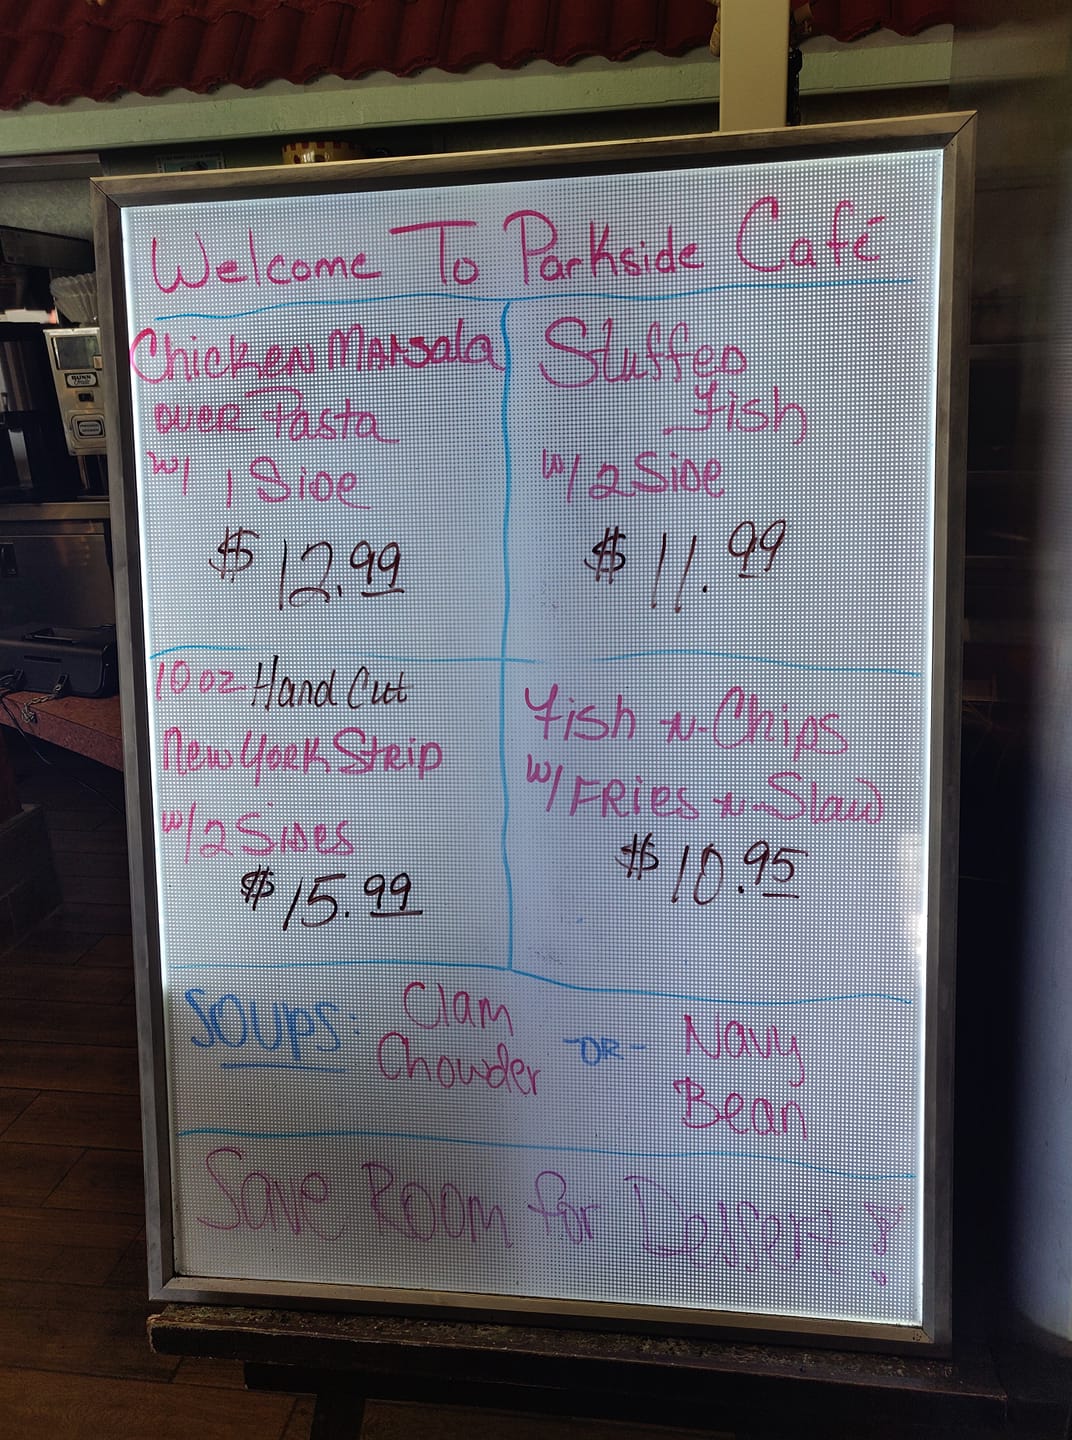 Welcome To Parkside Café
Chicken Marsala
over Pasta
w/ 1 Side
$12.99
Stuffed
Fish
w/2 Side
$11.99
10 oz Hand Cut
New York Strip
w/2 Sides
$15.99
Fish -n- Chips
w/Fries -n- Slaw
$10.95
SOUPS: Clam
Chowder
-OR-
Navy
Bean
Save Room for Dessert!
BUNN